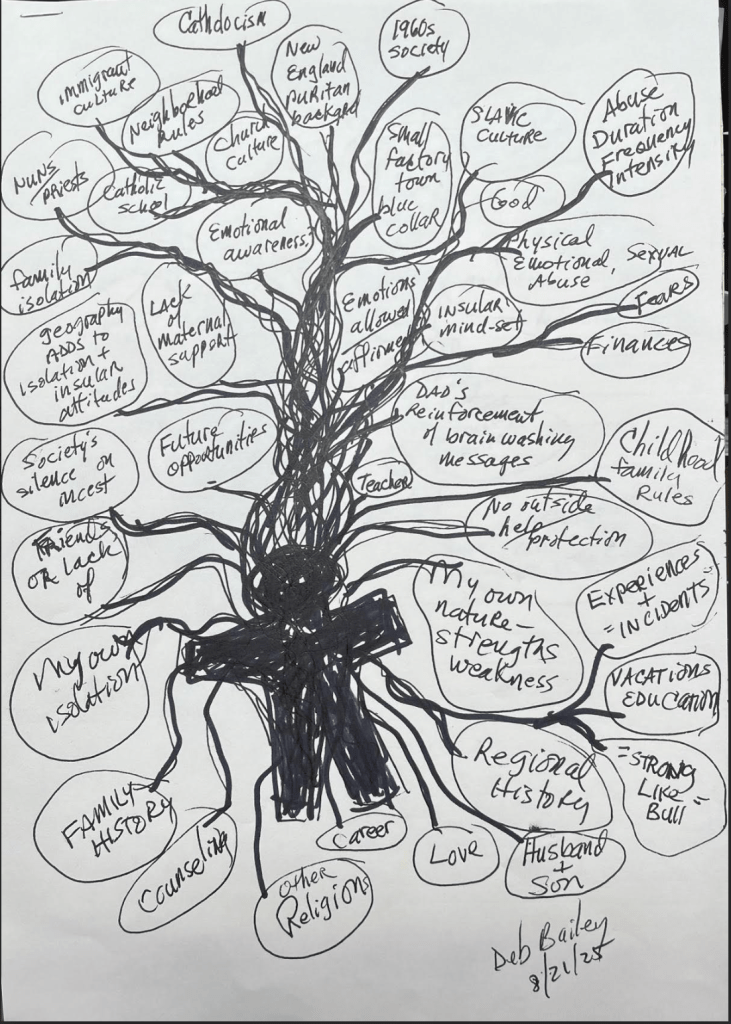 Cathdocism
1960s
society
New
England
Puritan
backgrd
immigrant
culture
Neighborhood
Rules
Church
Culture
Small
factory
town
blue
collar
SLAVIC
CULTURE
Abuse
Duration
Frequency
Intensity
NUNS
priests
Catholic
school
Emotional
awareness?
God
Physical
Emotional, SEXUAL
Abuse
family
isolation
LACK
of
maternal
support
Emotions
allowed
affirmed
INSULAR
mind-set
Fears
Finances
geography
ADDS to
isolation +
insular
attitudes
DAD's
Reinforcement
of brainwashing
messages
Society's
silence on
incest
Future
opportunities
Teacher
Childhood
family
Rules
No outside
help
protection
Friends
or lack
of
My own
nature-
strengths
weakness
Experiences
+
=INCIDENTS
My own
isolation
VACATIONS
EDUCATION
Regional
History
=STRONG
LIKE
Bull=
FAMILY
HISTORY
Counseling
Other
Religions
Career
Love
Husband
+
Son
Deb Bailey
8/21/25